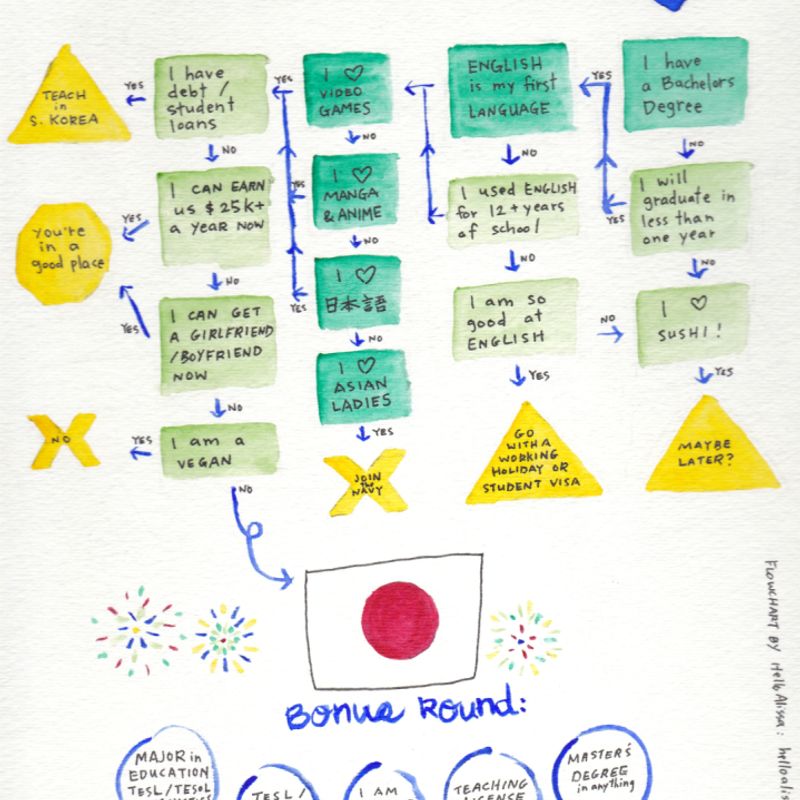 I have
a Bachelors
Degree
YES
NO
I will
graduate in
less than
one year
YES
NO
I ♡
SUSHI!
YES
MAYBE
LATER?
ENGLISH
is my first
LANGUAGE
NO
I used ENGLISH
for 12+ years
of school
NO
I am so
good at
ENGLISH
NO
YES
GO
WITH A
WORKING
HOLIDAY OR
STUDENT VISA
I ♡
VIDEO
GAMES
YES
NO
I ♡
MANGA
& ANIME
YES
NO
I ♡
日本語
YES
NO
I ♡
ASIAN
LADIES
YES
JOIN
the
NAVY
I have
debt /
student
loans
YES
NO
TEACH
in
S. KOREA
I CAN EARN
US $25K+
a YEAR NOW
YES
NO
You're
in a
good place
I CAN GET
A GIRLFRIEND
/BOYFRIEND
NOW
YES
NO
I am a
VEGAN
YES
NO
NO
Bonus Round:
MAJOR in
EDUCATION
TESL/TESOL
TESL/
I AM
TEACHING
LICENSE
MASTER'S
DEGREE
in anything
FLOWCHART BY Hello Alissa: